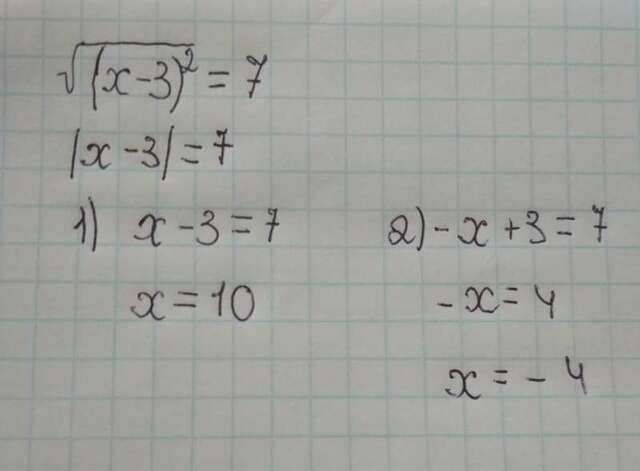 √(x-3)² = 7
|x-3| = 7
1) x-3=7 2) -x+3=7
x=10 -x=4
x=-4